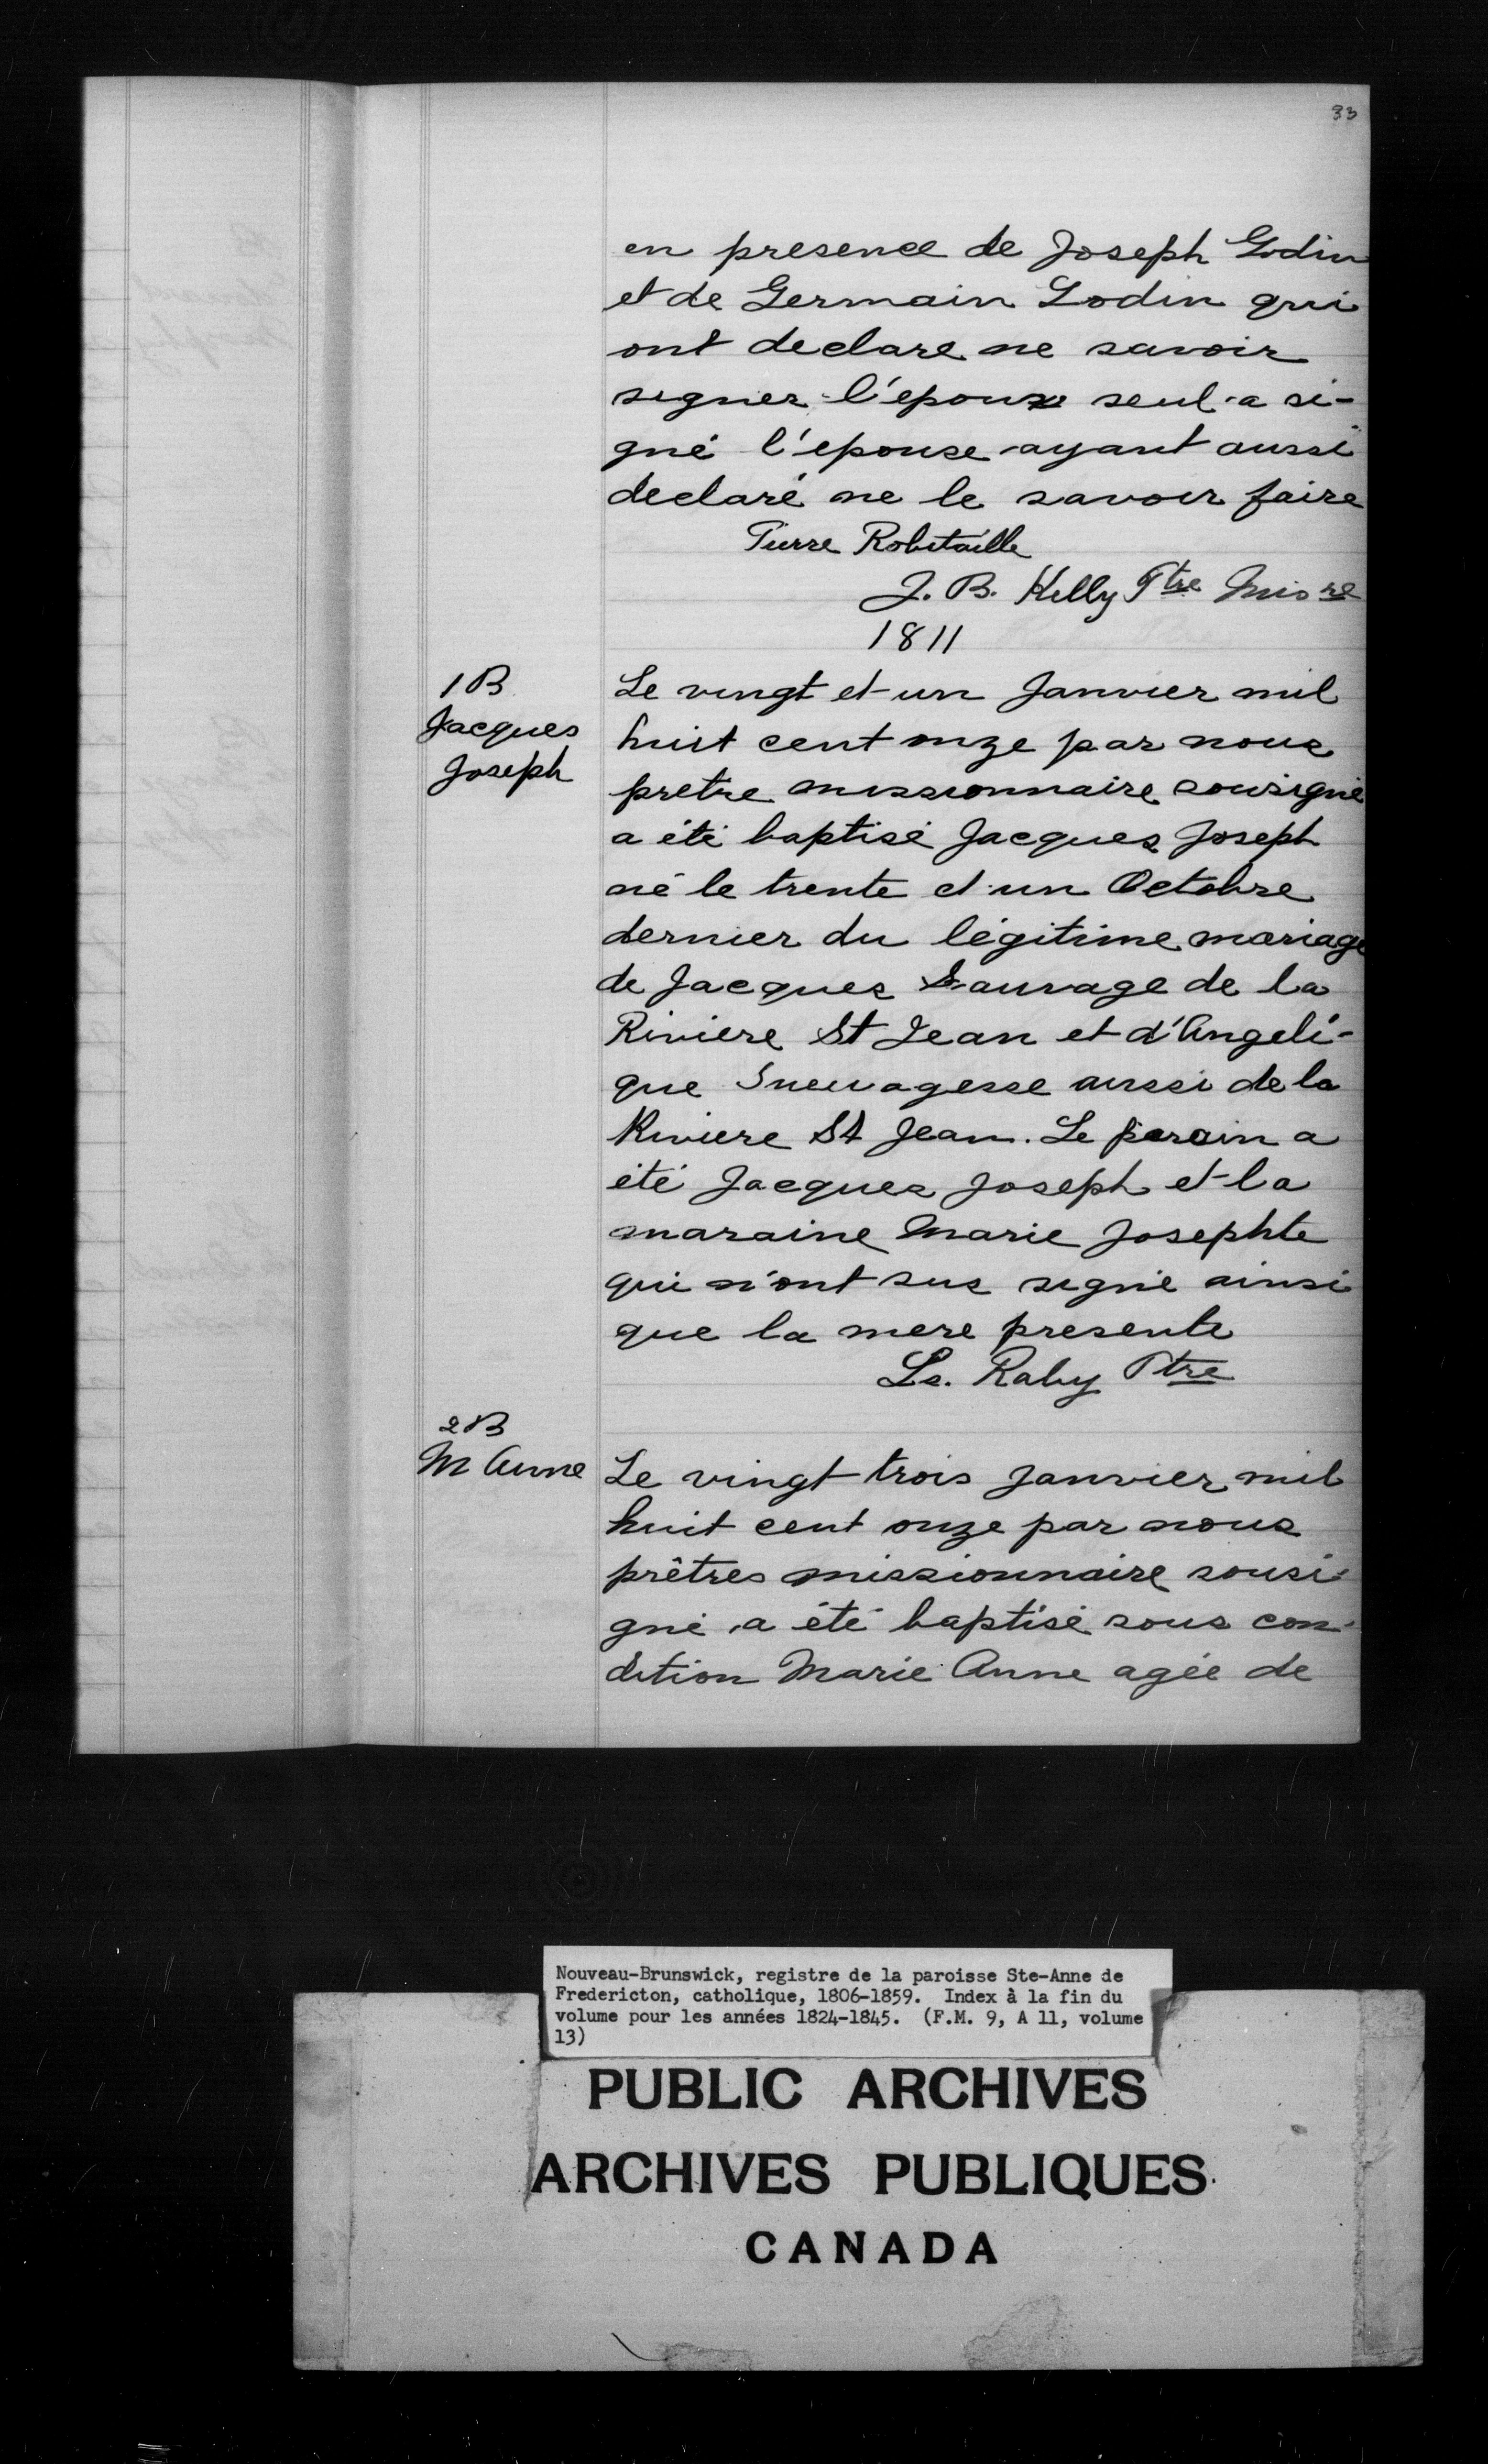 33
en presence de Joseph Godin
et de Germain Godin qui
ont declare ne savoir
signer l'epoux seul a si-
gné l'epouse ayant aussi
declaré ne le savoir faire
Pierre Robitaille
J. B. Kelly Ptre Misre
1811
1 B
Jacques
Joseph
Le vingt et un Janvier mil
huit cent onze par nous
pretre missionnaire sousigné
a été baptisé Jacques Joseph
né le trente et un Octobre
dernier du légitime mariage
de Jacques Sauvage de la
Riviere St Jean et d'Angeli-
que aussi de la
Riviere St Jean. Le parain a
été Jacques Joseph et la
maraine Marie Josephte
qui n'ont sus signé ainsi
que la mere presente
Ls. Raby Ptre
2 B
M Anne
Le vingt trois Janvier mil
huit cent onze par nous
prêtres missionnaire sousi-
gné a été baptisé sous con-
dition Marie Anne agée de
Nouveau-Brunswick, registre de la paroisse Ste-Anne de
Fredericton, catholique, 1806-1859. Index à la fin du
volume pour les années 1824-1845. (F.M. 9, A 11, volume
13)
PUBLIC ARCHIVES
ARCHIVES PUBLIQUES
CANADA